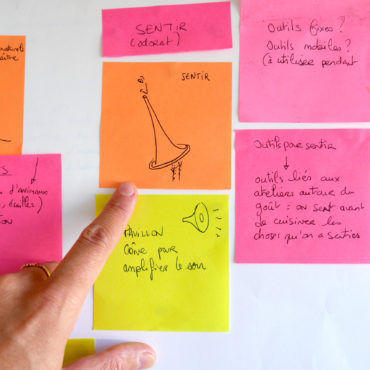 SENTIR
(odorat)
SENTIR
Outils fixes ?
Outils mobiles ?
(à utiliser pendant
PAVILLON
Cône pour
amplifier le son
Outils pour sentir
outils liés aux
ateliers autour du
goût : on sent avant
de cuisiner les
choses qu'on a senties
d'animaux